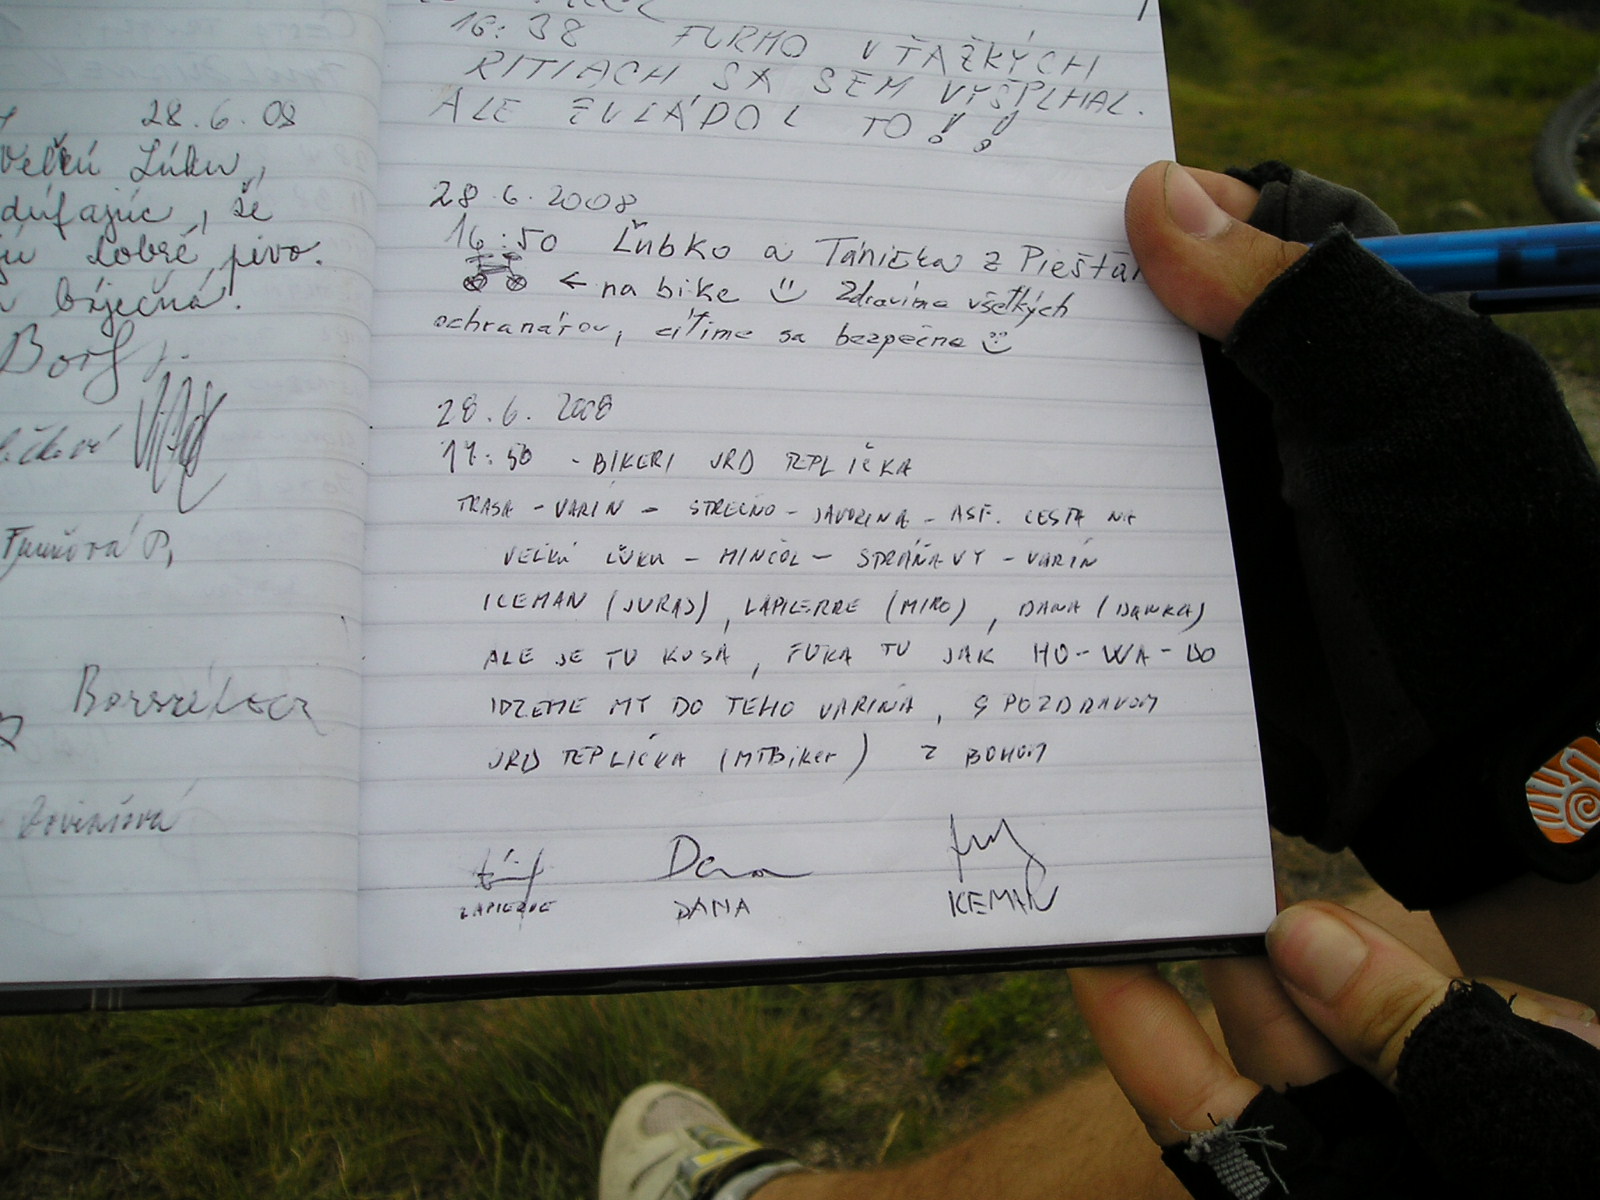 28.6.08
Veľkú Lúku,
dúfajúc, že
dobré pivo.
báječná.
16:38 FURMO V ŤAŽKÝCH
RITIACH, SA SEM VYŠPLHAL.
ALE ZVLÁDOL TO!!
28.6.2008
16:50 Ľubko a Tánička z Piešťa
← na bike Zdravíme všetkých
ochranárov, cítime sa bezpečne
28.6.2008
17:50 - BIKERI JRD TEPLIČKA
TRASA - VARÍN - STREČNO - JAVORINA - ASF. CESTA NA
VEĽKÚ LÚKU - MINČOL - STRÁŇAVY - VARÍN
ICEMAN (JURAJ), LAPIERRE (MIRO), DANA (DANKA)
ALE JE TU KOSA, FÚKA TU JAK HO-WA-DO
IDZEME MY DO TEHO VARÍNA, S POZDRAVOM
JRD TEPLIČKA (MTBiker) Z BOHOM
Dana
LAPIERRE DANA ICEMAN